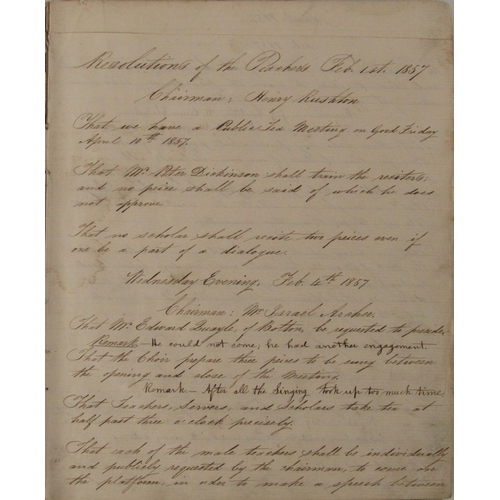 Resolutions of the Teachers Feb. 1st. 1857
Chairman: Henry Rushton
That we have a Public Tea Meeting on Good Friday
April 10th 1857.
That Mr. Peter Dickinson shall train the reciters;
and no piece shall be said of which he does
not approve.
That no scholar shall recite two pieces even if
one be a part of a dialogue.
Wednesday Evening, Feb. 4th 1857
Chairman: Mr. Israel Archer.
That Mr. Edward Quayle, of Bolton, be requested to preside.
Remark – He could not come; he had another engagement.
That the Choir prepare three pieces to be sung between
the opening and close of the Meeting.
Remark – After all the Singing took up too much time.
That Teachers, Servers, and Scholars take tea at
half past three o'clock precisely.
That each of the male teachers shall be individually
and publicly requested by the chairman, to come on
the platform, in order to make a speech between